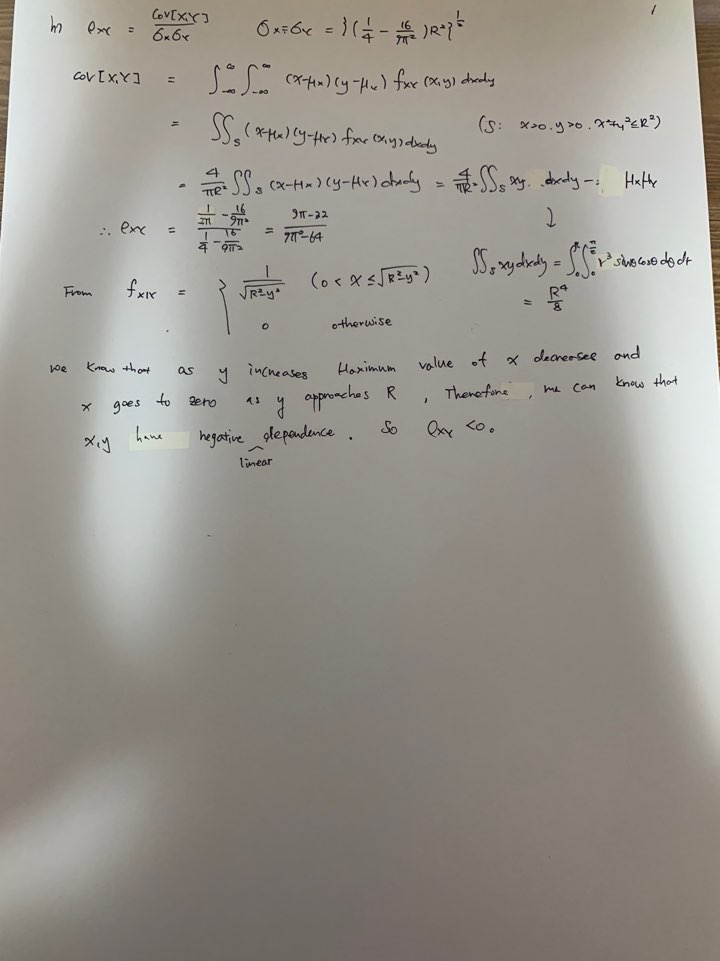 h) ρxy = Cov[X,Y] / σxσy   σx=σy = {(1/4 - 16/9π²)R²}^½
cov[X,Y] = ∫_{-∞}^{∞}∫_{-∞}^{∞} (x-μx)(y-μx) fxy(x,y) dxdy
= ∬_S (x-μx)(y-μy) fxy(x,y) dxdy   (S: x>0. y>0. x²+y²≤R²)
= 4/πR² ∬_S (x-μx)(y-μy) dxdy = 4/πR² ∬_S xy dxdy - μxμy
∴ ρxy = (1/2π - 16/9π²) / (1/4 - 16/9π²) = (9π-32) / (9π²-64)
↓
∬_S xy dxdy = ∫₀^R ∫₀^{π/2} r³ sinθcosθ dθ dr
= R⁴/8
From f_{X|Y} = { 1/√(R²-y²)   (0 < x ≤ √(R²-y²))
0   otherwise
we know that as y increases Maximum value of x decreases and
x goes to zero as y approaches R , Therefore , we can know that
x,y have negative linear dependence . So ρxy <0.